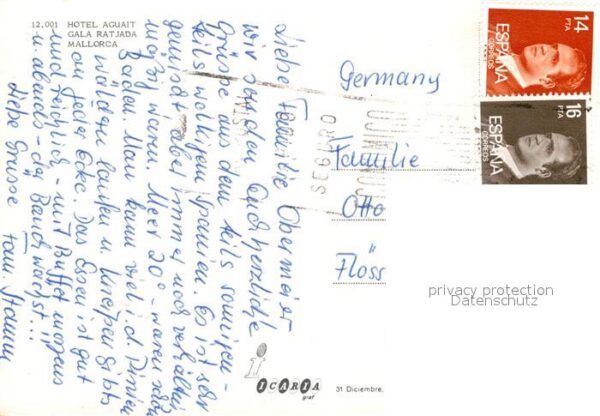 12.001 HOTEL AGUAIT
CALA RATJADA
MALLORCA
Liebe Familie Obermeier
wir senden Euch herzliche
Grüsse aus dem teils sonnigen -
teils wolkigem Spanien. Es ist sehr
gewindet aber immer noch
Meer 20° - waren schon
baden. Man kann viel i. d. Pinien
wäldern laufen u. Kneipen gibts
an jeder Ecke. Das Essen ist gut
und reichlich - mit Buffet morgens
u. abends - der Bauch wächst!...
Liebe Grüsse
Fam.
Germany
Familie
Otto
Flöss
14
PTA
ESPAÑA
CORREOS
16
PTA
ESPAÑA
CORREOS
SEGURO
privacy protection
Datenschutz
i
ICARIA
graf
31 Diciembre,